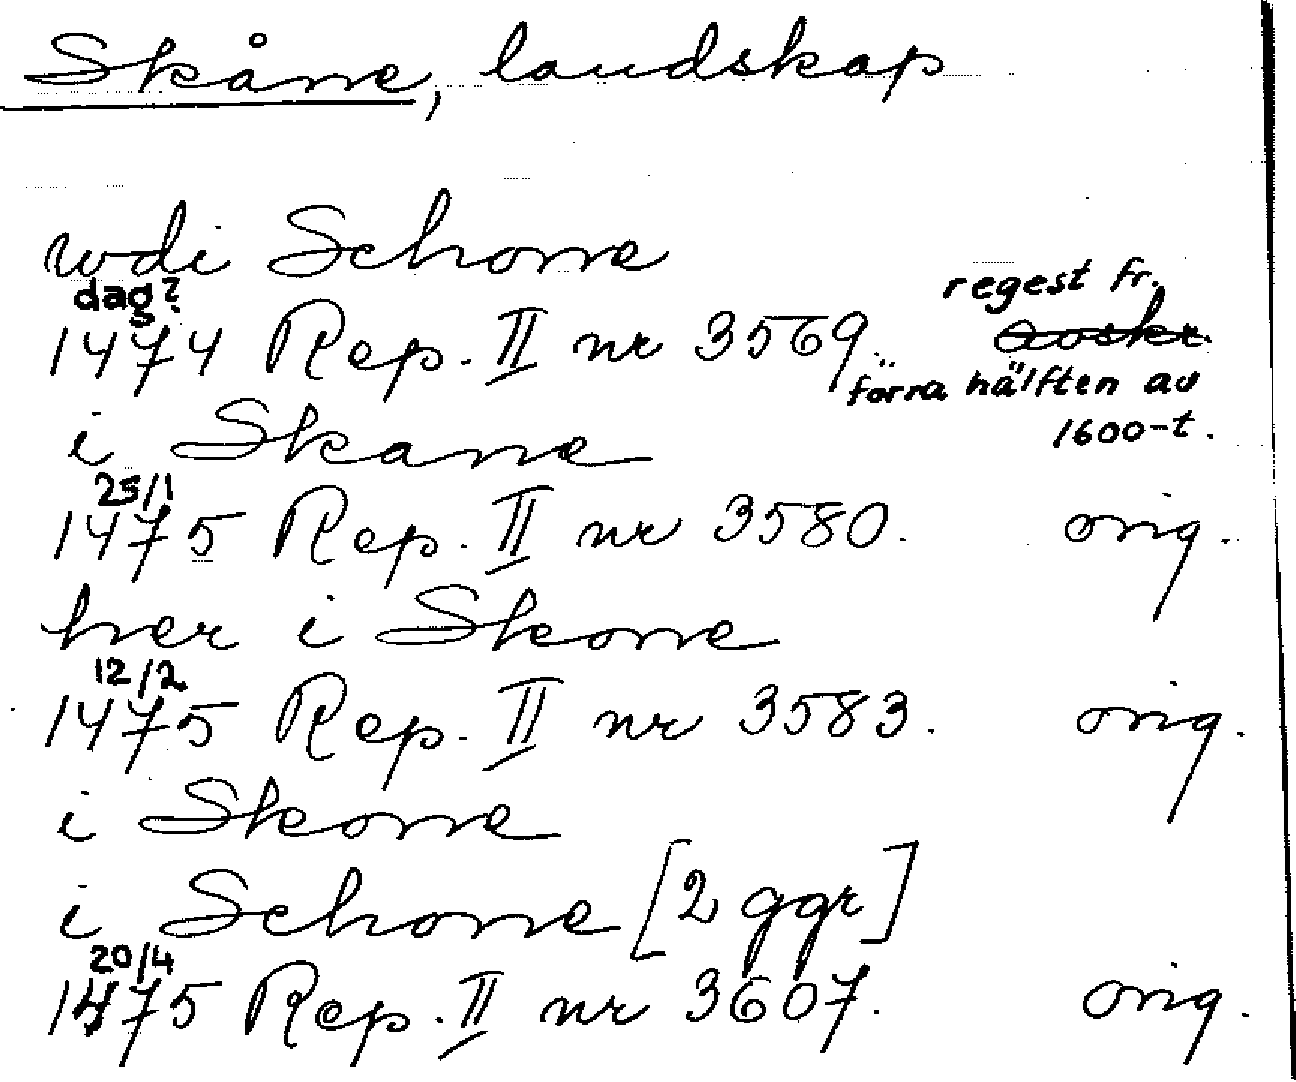 Skåne, landskap
wdi Schone
dag?
1474 Rep. II nr 3569.
regest fr.
avskr.
förra hälften av
1600-t.
i Skane
25/1
1475 Rep. II nr 3580. orig.
her i Skone
12/2
1475 Rep. II nr 3583. orig.
i Skone
i Schone [2 ggr]
20/4
1475 Rep. II nr 3607. orig.